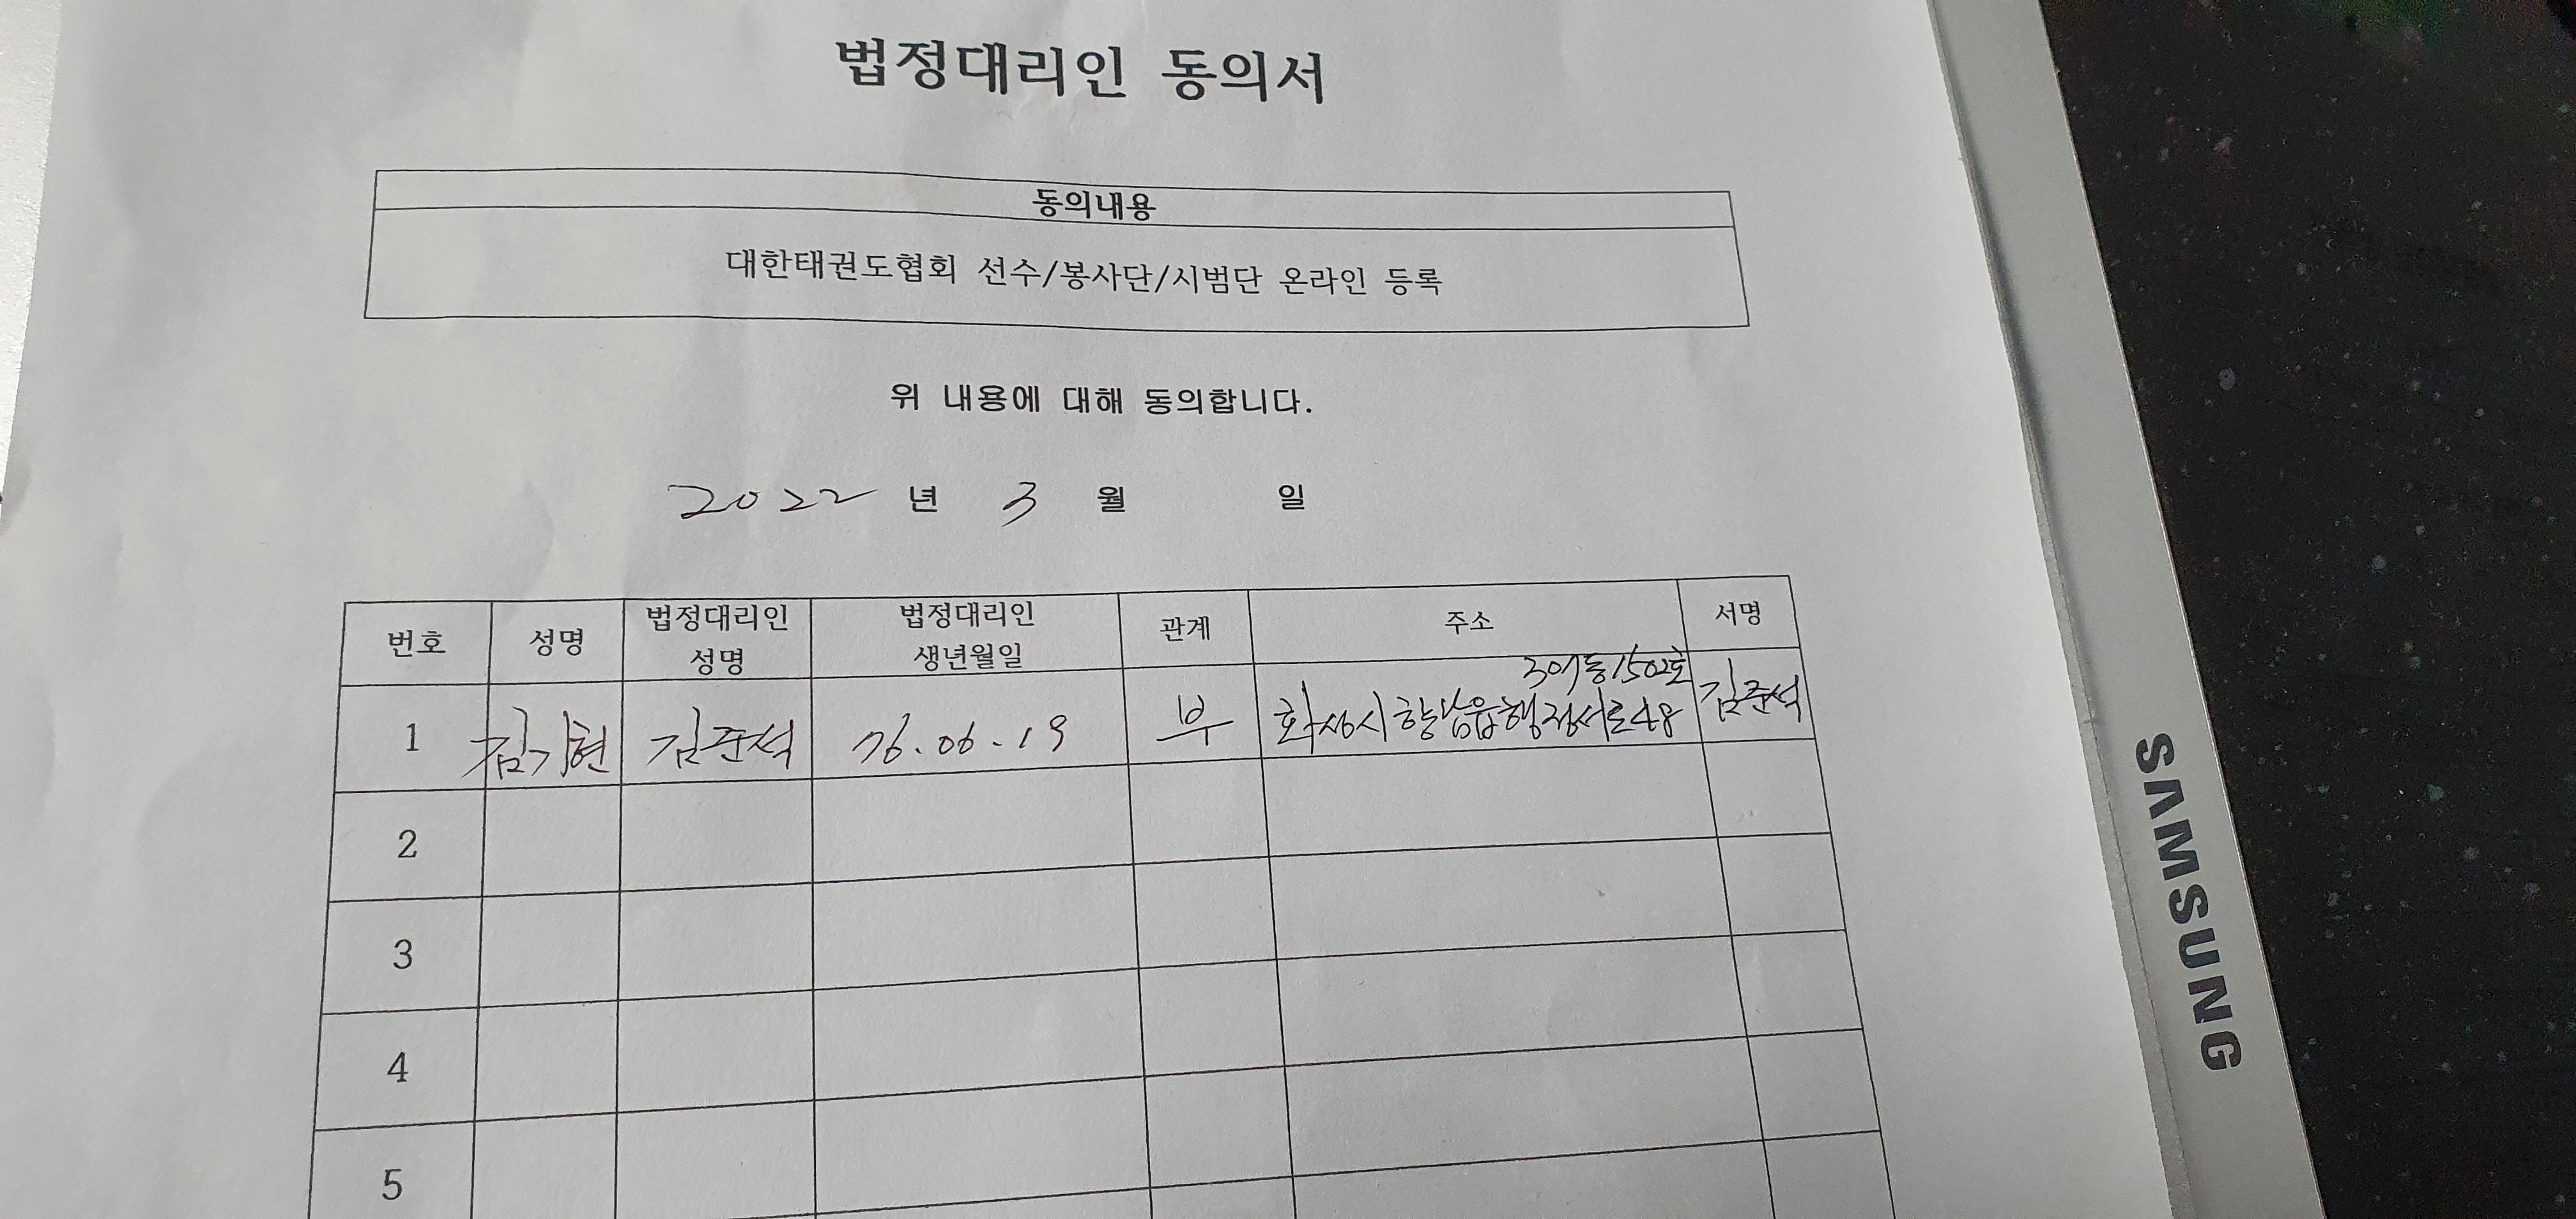 법정대리인 동의서
동의내용
대한태권도협회 선수/봉사단/시범단 온라인 등록
위 내용에 대해 동의합니다.
2022 년 3 월 일
번호 성명 법정대리인 성명 법정대리인 생년월일 관계 주소 서명
1 김기현 김준석 76.06.19 부 화성시 향남읍 행정서로48 김준석
2
3
4
5
SAMSUNG